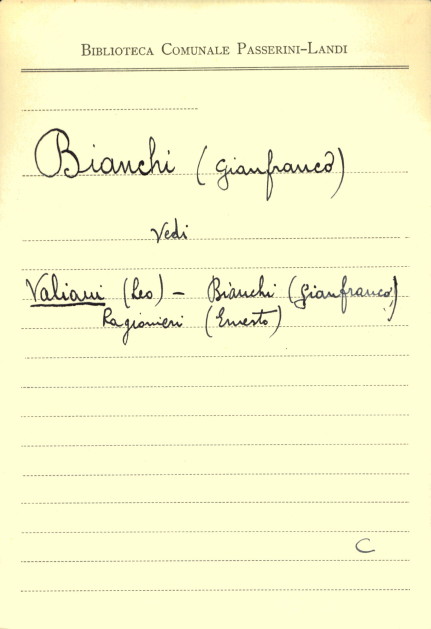 BIBLIOTECA COMUNALE PASSERINI-LANDI
Bianchi (Gianfranco)
Vedi
Valiani (Leo) – Bianchi (Gianfranco)
Ragionieri (Ernesto)
C